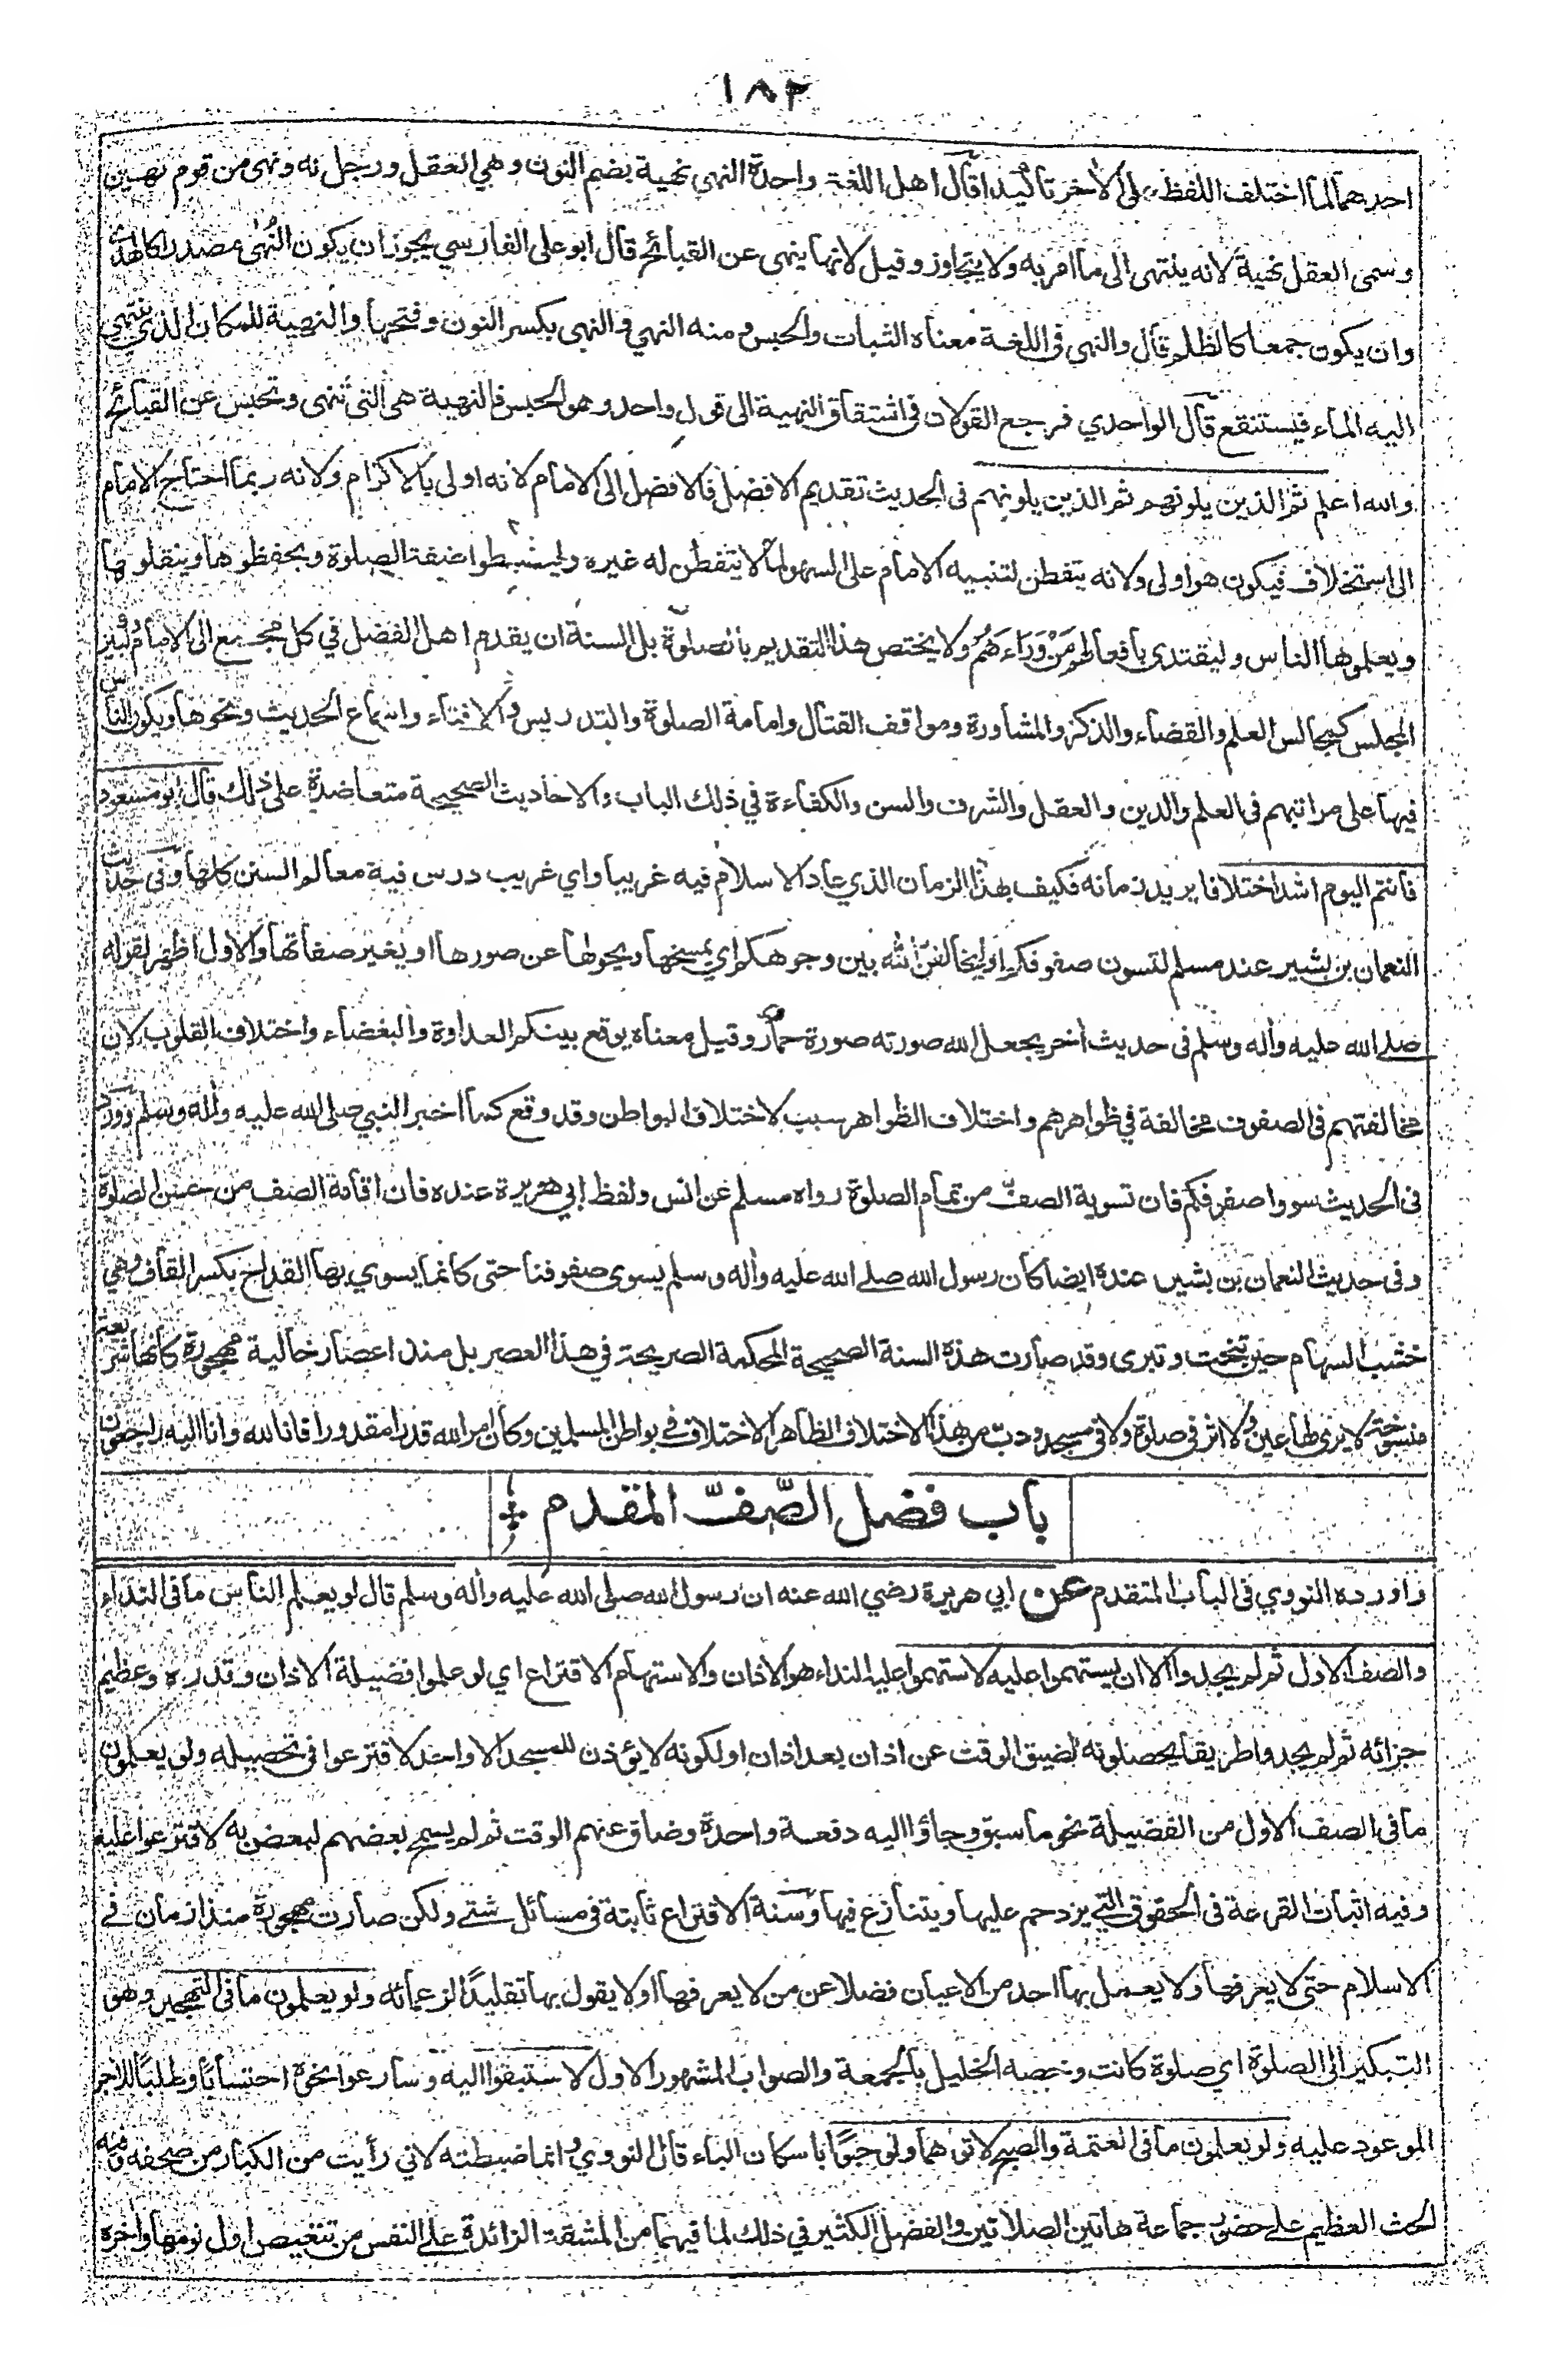 ١٨٢
احدهما لما اختلف اللفظ على الأخر تاكيدا قال اهل اللغة واحدة النهى نهية بضم النون وهي العقل ورجل نه ونهى من قوم نهين
وسمى العقل نهية لانه ينتهى الى ما امر به ولا يتجاوز وقيل لانها ينهى عن القبائح قال ابو على الفارسي يجوز ان يكون النُهٰى مصدرا كالهدى
وان يكون جمعا كالظلم قال والنهى فى اللغة معناه الثبات والحبس ومنه النهي والنهى بكسر النون وفتحها والنهية للمكان الذي ينتهي
اليه الماء فيستنقع قال الواحدي فرجع القولان فى اشتقاق النهية الى قول واحد وهو الحبس فالنهية هى التى تنهى وتحبس عن القبائح
والله اعلم ثم الذين يلونهم ثم الذين يلونهم فى الحديث تقديم الافضل فالافضل الى الامام لانه اولى بالاكرام ولانه ربما احتاج الامام
الى استخلاف فيكون هو اولى ولانه يتفطن لتنبيه الامام على السهو لما لا يتفطن له غيره وليضبطوا صفة الصلوة ويحفظوها وينقلوها
ويعلموها الناس وليقتدى بافعالهم مَنْ وَرَاءَهُمْ ولا يختص هذا التقديم بالصلوة بل السنة ان يقدم اهل الفضل في كل مجمع الى الامام وكبير
المجلس كمجالس العلم والقضاء والذكر والمشاورة ومواقف القتال وامامة الصلوة والتدريس والافتاء واسماع الحديث ونحوها ويكون الناس
فيها على مراتبهم فى العلم والدين والعقل والشرف والسن والكفاءة في ذلك الباب والاحاديث الصحيحة متعاضدة على ذلك قال ابو مسعود
فانتم اليوم اشد اختلافا يريد زمانه فكيف بهذا الزمان الذي عاد الاسلام فيه غريبا واي غريب درس فيه معالم السنن كلها وفى حديث
النعمان بن بشير عند مسلم لتسون صفوفكم او ليخالفن الله بين وجوهكم اي يمسخها ويحولها عن صورها او يغير صفاتها والاول اظهر لقوله
صلى الله عليه وأله وسلم فى حديث أخر يجعل الله صورته صورة حمار وقيل معناه يوقع بينكم العداوة والبغضاء واختلاف القلوب لان
مخالفتهم فى الصفوف مخالفة في ظواهرهم واختلاف الظواهر سبب لاختلاف البواطن وقد وقع كما اخبر النبي صلى الله عليه وأله وسلم وورد
فى الحديث سووا صفوفكم فان تسوية الصفّ من تمام الصلوة رواه مسلم عن انس ولفظ ابي هريرة عنده فان اقامة الصف من حسن الصلوة
وفى حديث النعمان بن بشير عنده ايضا كان رسول الله صلے الله عليه وأله وسلم يسوى صفوفنا حتى كانما يسوي بها القداح بكسر القاف وهي
خشب السهام حين تنحت وتبرى وقد صارت هذه السنة الصحيحة المحكمة الصريحة في هذا العصر بل منذ اعصار خالية مهجورة كانها شريعة
منسوخة لا يرى لها عين ولا اثر فى صلوة ولا فى مسجد ودب من هذا الاختلاف الظاهر الاختلاف فے بواطن المسلمين وكان امر الله قدرا مقدورا فانا لله وانا اليه راجعون
باب فضل الصّفّ المقدم
واورده النووي فى الباب المتقدم عن ابي هريرة رضي الله عنه ان رسول الله صلى الله عليه وأله وسلم قال لو يعلم الناس ما فى النداء
والصف الاول ثم لم يجدوا الا ان يستهموا عليه لاستهموا عليه النداء هو الاذان والاستهام الاقتراع اي لو علموا فضيلة الاذان وقدره وعظيم
جزائه ثم لم يجدوا طريقا يحصلونه لضيق الوقت عن اذان بعد اذان او لكونه لا يؤذن للمسجد الا واحد لاقترعوا فى تحصيله ولو يعلمون
ما فى الصف الاول من الفضيلة نحو ما سبق وجاؤا اليه دفعة واحدة وضاق عنهم الوقت ثم لم يسمح بعضهم لبعض به لاقترعوا عليه
وفيه اثبات القرعة فى الحقوق التے يزدحم عليها ويتنازع فيها وسنة الاقتراع ثابتة فى مسائل شتے ولكن صارت مهجورة منذ ازمان فے
الاسلام حتى لا يعرفها ولا يعمل بها احد من الاعيان فضلا عن من لا يعرفها او لا يقول بها تقليدًا لزعمائه ولو يعلمون ما فى التهجير وهو
التبكير الى الصلوة اي صلوة كانت وخصه الخليل بالجمعة والصواب المشهور الاول لاستبقوا اليه وسارعوا نحوه احتسابًا وطلبًا للاجر
الموعود عليه ولو يعلمون ما فى العتمة والصبح لاتوهما ولو حبوًا باسكان الباء قال النووي وانما ضبطته لاني رأيت من الكبار من صحفه وفيه
الحث العظيم علے حضور جماعة هاتين الصلاتين والفضل الكثير في ذلك لما فيهما من المشقة الزائدة علے النفس من تنغيص اول نومها وأخره